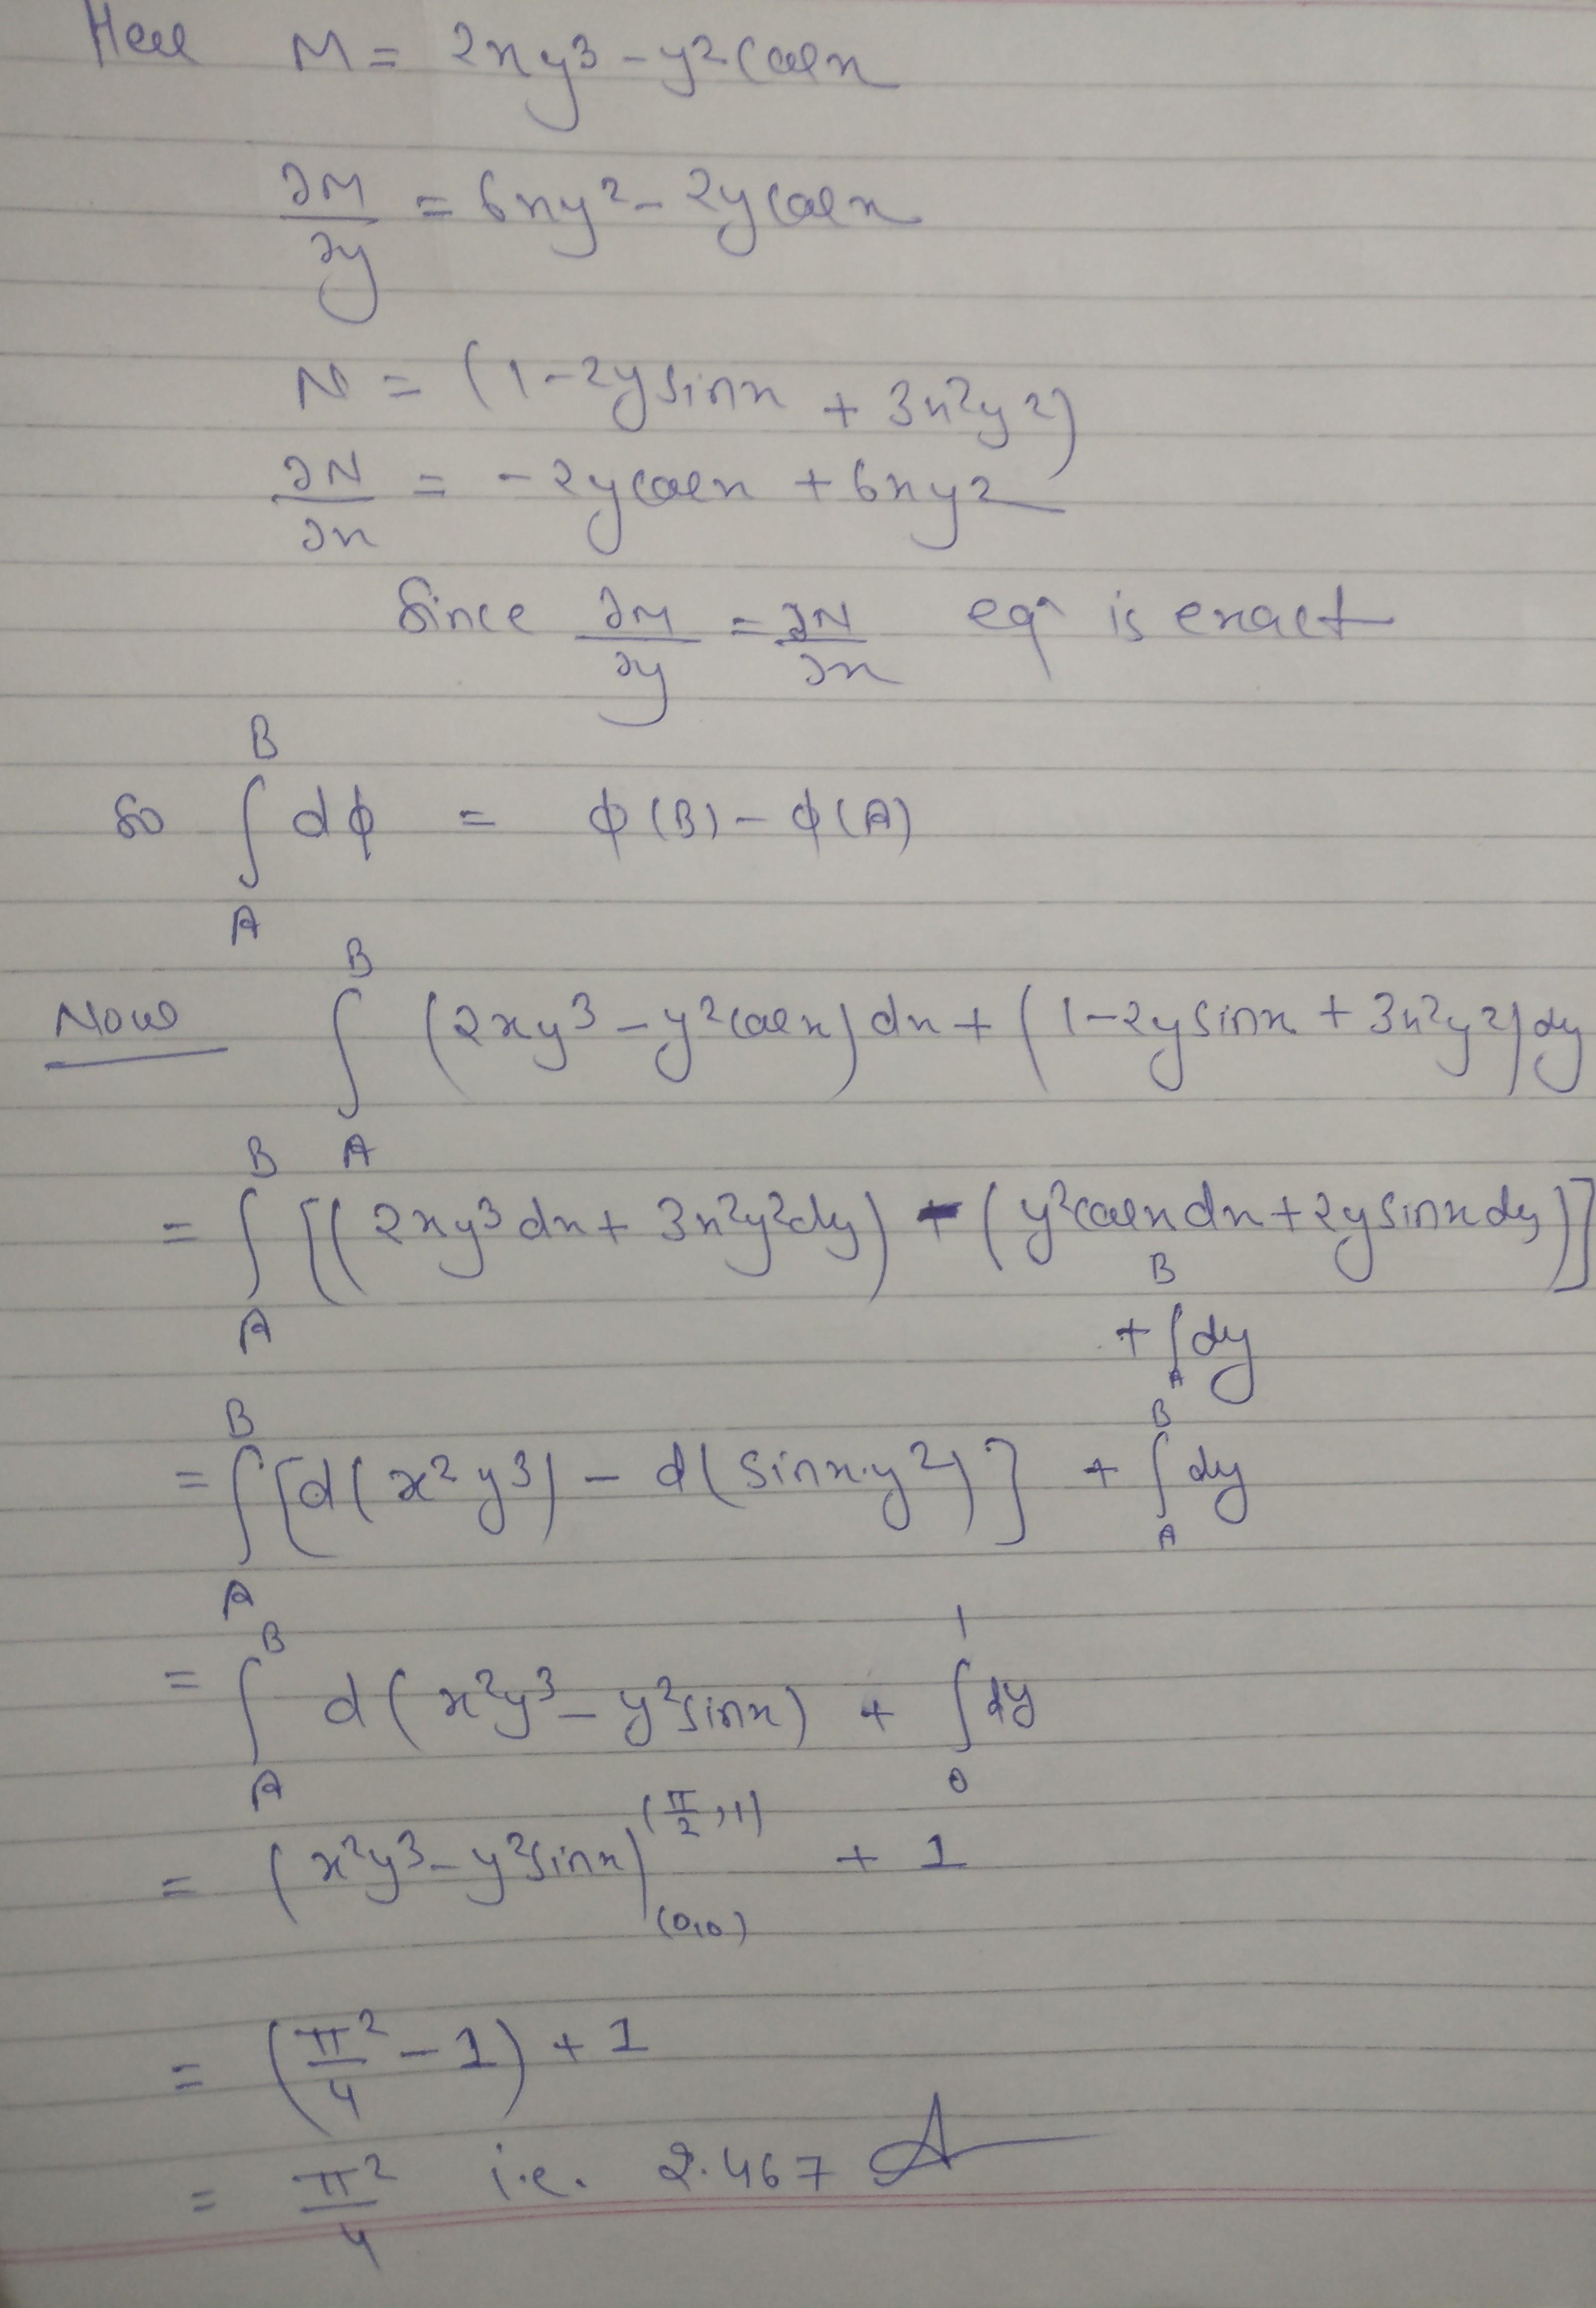 Here M = 2xy³ - y² cos x
∂M/∂y = 6xy² - 2y cos x
N = (1 - 2y sin x + 3x²y²)
∂N/∂x = -2y cos x + 6xy²
Since ∂M/∂y = ∂N/∂x eqⁿ is exact
So ∫_A^B dϕ = ϕ(B) - ϕ(A)
Now ∫_A^B (2xy³ - y² cos x) dx + (1 - 2y sin x + 3x²y²) dy
= ∫_A^B [(2xy³ dx + 3x²y² dy) - (y² cos x dx + 2y sin x dy)]
+ ∫_A^B dy
= ∫_A^B [d(x²y³) - d(sin x·y²)] + ∫_A^B dy
= ∫_A^B d(x²y³ - y² sin x) + ∫_0^1 dy
= (x²y³ - y² sin x)_(0,0)^(π/2, 1) + 1
= (π²/4 - 1) + 1
= π²/4 i.e. 2.467 A